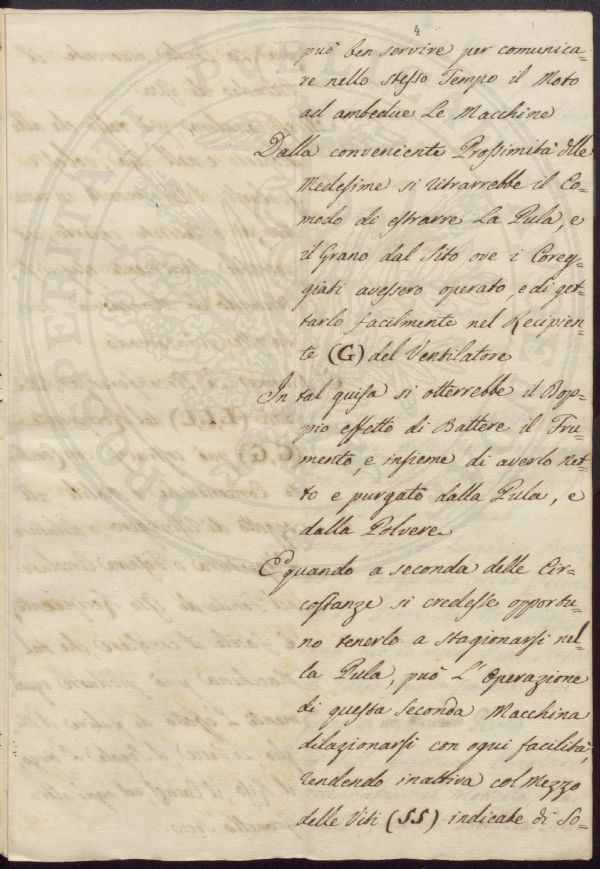 4
può ben servire per comunica=
re nello stesso Tempo il Moto
ad ambedue Le Macchine
Dalla conveniente Prossimità dlle
Medesime si ritrarrebbe il Co=
modo di estrarre La Pula, e
il Grano dal Sito ove i Coreg=
giati avessero operato, e di get=
tarlo facilmente nel Recipien=
te (G) del Ventilatore
In tal guisa si otterrebbe il Dop=
pio effetto di Battere il Fru=
mento, e insieme di averlo net=
to e purgato dalla Pula, e
dalla Polvere
E quando a seconda delle Cir=
costanze si credesse opportu=
no tenerlo a stagionarsi nel=
la Pula, può L'Operazione
di questa seconda Macchina
dilazionarsi con ogni facilità,
rendendo inattiva col Mezzo
delle Viti (SS) indicate di So=